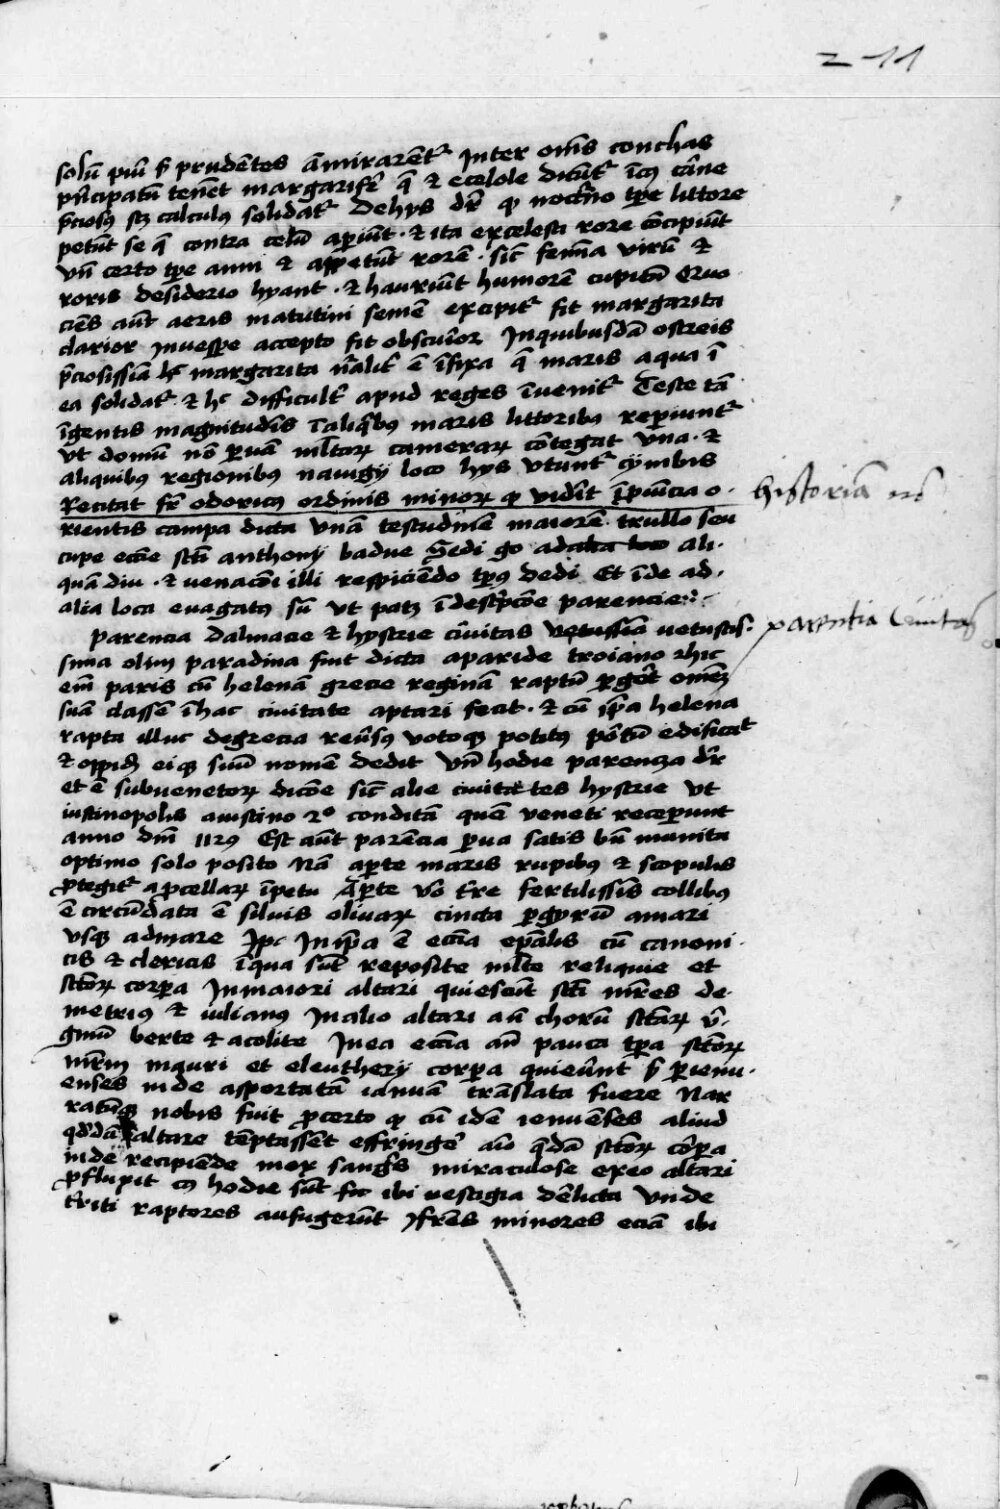 211
solū piū ß prudētes āmirarēt᷑ Inter om̄s conchas
pñcipatū tenēt margarifeᷓ q̄ & ecelole dicūt᷑ īcꝰ cāne
p̄ciosꝰ calculꝰ solidat᷑ Dehys dr̄ ꝙ nocťno tp̄e littore
petūt se q̄ contra celū apiūt · & ita excelesti rore cōcipiūt
vn̄ certo tp̄e anni & appetūt rorē · sic̄ femīa virū &
roris desiderio hyant · & hauriūt humorē cupitū Quo
ciēs aūt aeris matutini semē excipit᷑ fit margarita
clarior Inuespe accepto fit obscuior Inquibusdā ostreis
p̄ciosissīa hc̄ margarita n̄alit᷑ ē īfixa q̄ maris aqua ī
ea solidat᷑ · & hc̄ difficult᷑ apud reges īuenit᷑ Teste tā
īgentis magnitudīs ī aliqͥbus maris littoribus repiunt᷑
vt domū nō puā mltaꝝ cameraꝝ cōtegat vna · &
aliquibus regionibus nauigij loco hys vtunt᷑ cymbis
Recitat fr̄ odoricꝰ ordinis minoꝝ ꝙ vidit ī puīcia o·
rientis campa dicta vnā testudinē maiorē trullo seu
cupe ecc̄ie sc̄ti anthonij badue Sedi go ad ali·
quā diu · & uenacōi illi respiciēdo tp̄ꝰ dedi Et īde ad·
alia loca euagatꝰ sū vt patꝫ ī descp̄cōe parencie
historiā
parencia Dalmacie & hystrie ciuitas vetussīa uetustis·
parentia Ciuitas
sima olim paradina fuit dicta aparide troiano Hic
em̄ paris cū helenā grecie reginā raptū pgēt omēꝫ
suā classē ī hac ciuitate aptari fecit · & cū ip̄a helena
rapta illuc degrecia reūsꝰ votoqꝫ potitꝰ portū edificat
& oppidū eiqꝫ suū nomē dedit vn̄ hodie parencza dr̄
et ē subuenetoꝝ dicōe sic̄ alie ciuitates hystrie vt
iustinopolis aiustino 2º conditā quē veneti receperunt
anno dm̄ 1129 Est aūt parēcia pua satis bn̄ munita
optimo solo posito Nā apte maris rupibꝰ & scopulis
ptegit᷑ a pcellaꝝ īpetu Apte v̄o t̄re fertilissīs collibꝰ
ē circūdata ē siluis oliuaꝝ cincta pgyrū amari
vsqꝫ admare Ip̄ Inip̄a ē ecc̄ia epāłis cū canoni·
cis & clericis īqua sūt reposite mlte reliquie et
sc̄toꝝ corpa Inmaiori altari quiescūt sc̄ti mr̄es de·
metriꝰ & iulianꝰ Inalio altari añ chorū sc̄taꝝ v̄·
ginū berte & acolite Inea ecc̄ia añ pauca tp̄a sc̄toꝝ
mr̄m mauri et eleutherij corpa quieūnt ß p ienu·
enses inde asportatā ianuā trāslata fuere Nar
ratūqꝫ nobis fuit p certo ꝙ cū idē ienuēses aliud
qd̄dā altare tēptassēt effringe᷑ añ q̄dā sc̄toꝝ corpa
inde recipiēde mox sangͥs miraculose exeo altari
pfluxit cꝰ hodie sūt ibi uestigia dēlicta Vnde
t̄riti raptores aufugerūt Ifrēs minores eciā ibi